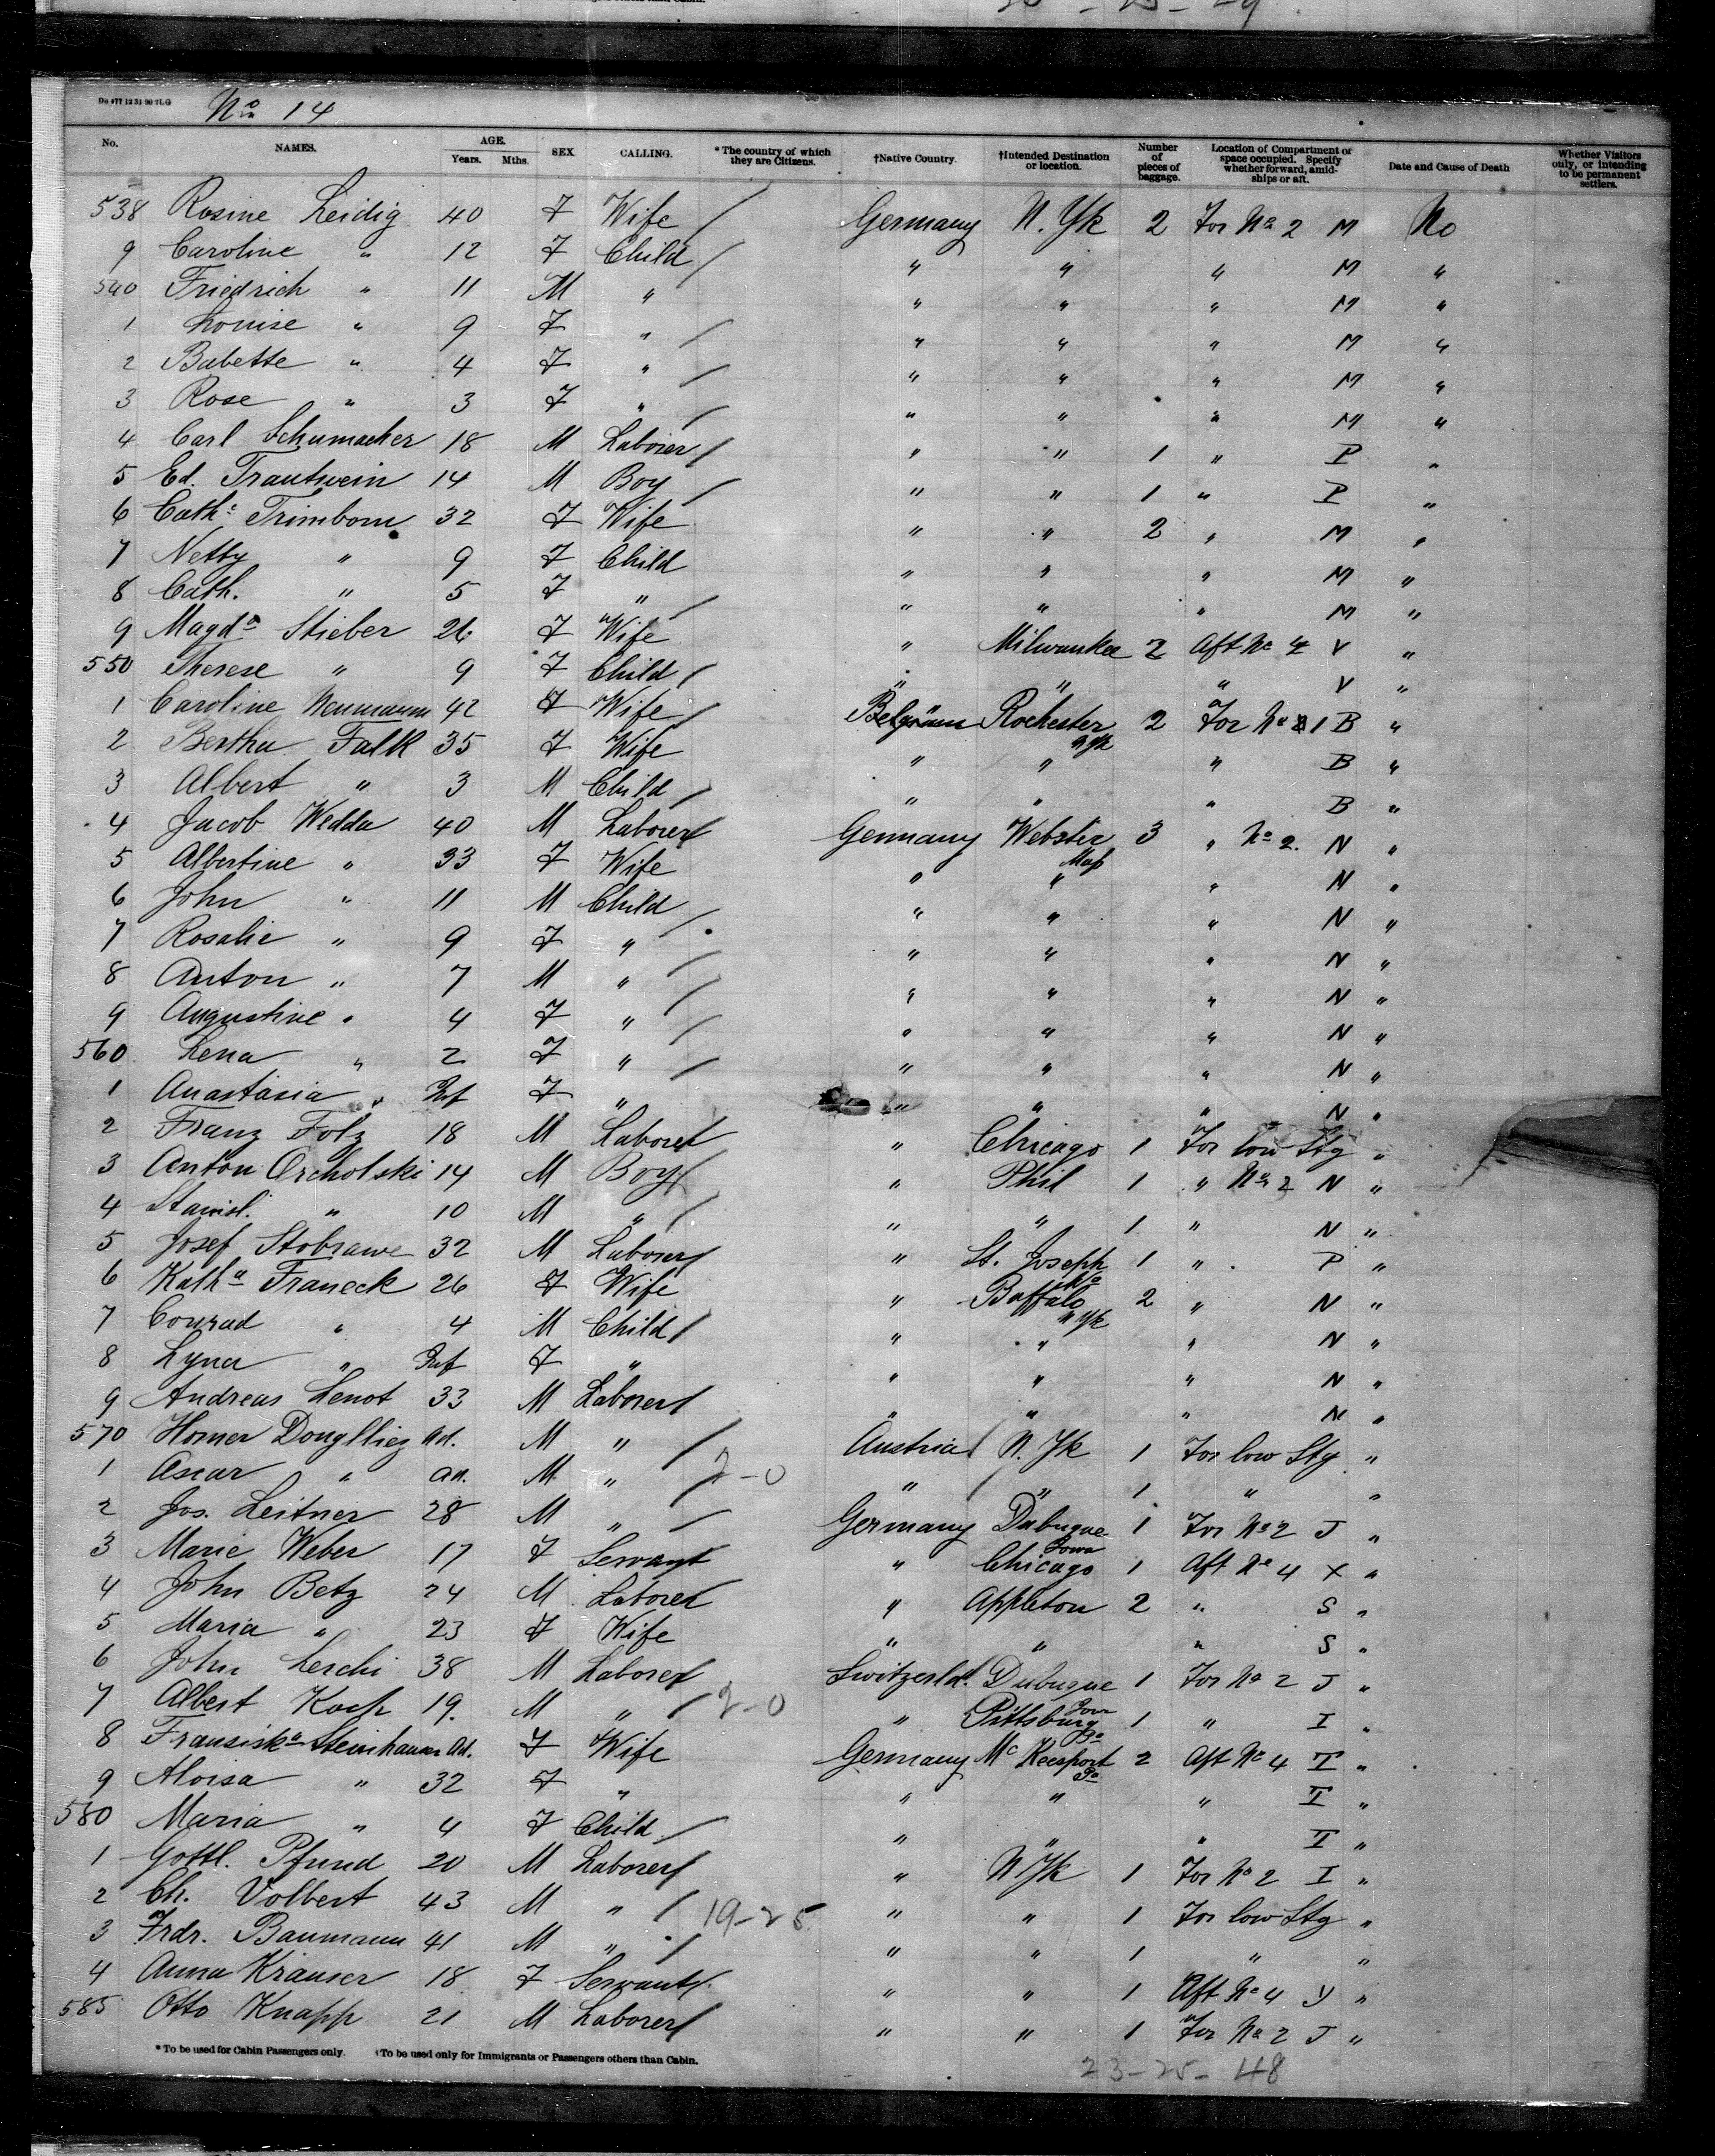 Do 477 12 31 90 2LG
No 14
No. NAMES. AGE. Years. Mths. SEX CALLING. * The country of which they are Citizens. †Native Country. †Intended Destination or location. Number of pieces of baggage. Location of Compartment or space occupied. Specify whether forward, amidships or aft. Date and Cause of Death Whether Visitors only, or intending to be permanent settlers.
538 Rosine Leidig 40 F Wife / Germany N. Yk 2 For No 2 M No
9 Caroline " 12 F Child / " " " M "
540 Friedrich " 11 M " " " " M "
1 Louise " 9 F " / " " " M "
2 Babette " 4 F " / " " " M "
3 Rose " 3 F " / " " " M "
4 Carl Schumacher 18 M Laborer / " " 1 " P "
5 Ed. Trautwein 14 M Boy / " " 1 " P "
6 Cath. Trimborn 32 F Wife " " 2 " M "
7 Netty " 9 F Child " " " M "
8 Cath. " 5 F " / " " " M "
9 Magda Stieber 26 F Wife " Milwaukee 2 Aft No 4 V "
550 Therese " 9 F Child / " " " V "
1 Caroline Neumann 42 F Wife / Belgium Rochester 2 For No 1 B "
N Yk
2 Bertha Falk 35 F Wife " " " B "
3 Albert " 3 M Child / " " " B "
4 Jacob Wedda 40 M Laborer / Germany Webster 3 " No 2. N "
5 Albertine " 33 F Wife " " " N "
6 John " 11 M Child / " " " N "
7 Rosalie " 9 F " / " " " N "
8 Anton " 7 M " / " " " N "
9 Augustine " 4 F " / " " " N "
560 Lena " 2 F " / " " " N "
1 Anastasia " Inf F " " " " N "
2 Franz Folz 18 M Laborer / " Chicago 1 For low Stg "
3 Anton Orcholski 14 M Boy / " Phil 1 " No 2 N "
4 Stanisl. " 10 M " / " " 1 " N "
5 Josef Stobrawe 32 M Laborer / " St. Joseph 1 " P "
6 Katha Traneck 26 F Wife " Buffalo 2 " N "
N Yk
7 Conrad " 4 M Child / " " " N "
8 Lyna " Inf F " " " " N "
9 Andreas Lenot 33 M Laborer / " " " N "
570 Homer Donglliez Ad. M " / Austria N. Yk 1 For low Stg "
1 Ascar " Ad. M " / 2-0 " " 1 " "
2 Jos. Leitner 28 M " / Germany Dubuque 1 For No 2 J "
Iowa
3 Marie Weber 17 F Servant " Chicago 1 Aft No 4 X "
4 John Betz 24 M Laborer " Appleton 2 " S "
5 Maria " 23 F Wife " " " S "
6 John Lerchi 38 M Laborer Switzerld. Dubuque 1 For No 2 J "
Iowa
7 Albert Koch 19. M " / 2-0 " Pittsburg 1 " I "
Pa
8 Fransiska Steinhauser Ad. F Wife Germany Mc Keesport 2 Aft No 4 T "
Pa
9 Aloisa " 32 F " " " " T "
580 Maria " 4 F Child / " " " T "
1 Gottl. Pfund 20 M Laborer / " N Yk 1 For No 2 I "
2 Ch. Volbert 43 M " / 19-25 " " 1 For low Stg "
3 Frdr. Baumann 41 M " / " " 1 " "
4 Anna Krauser 18 F Servant / " " 1 Aft No 4 Y "
585 Otto Knapp 21 M Laborer / " " 1 For No 2 J "
* To be used for Cabin Passengers only. †To be used only for Immigrants or Passengers others than Cabin.
23-25- 48